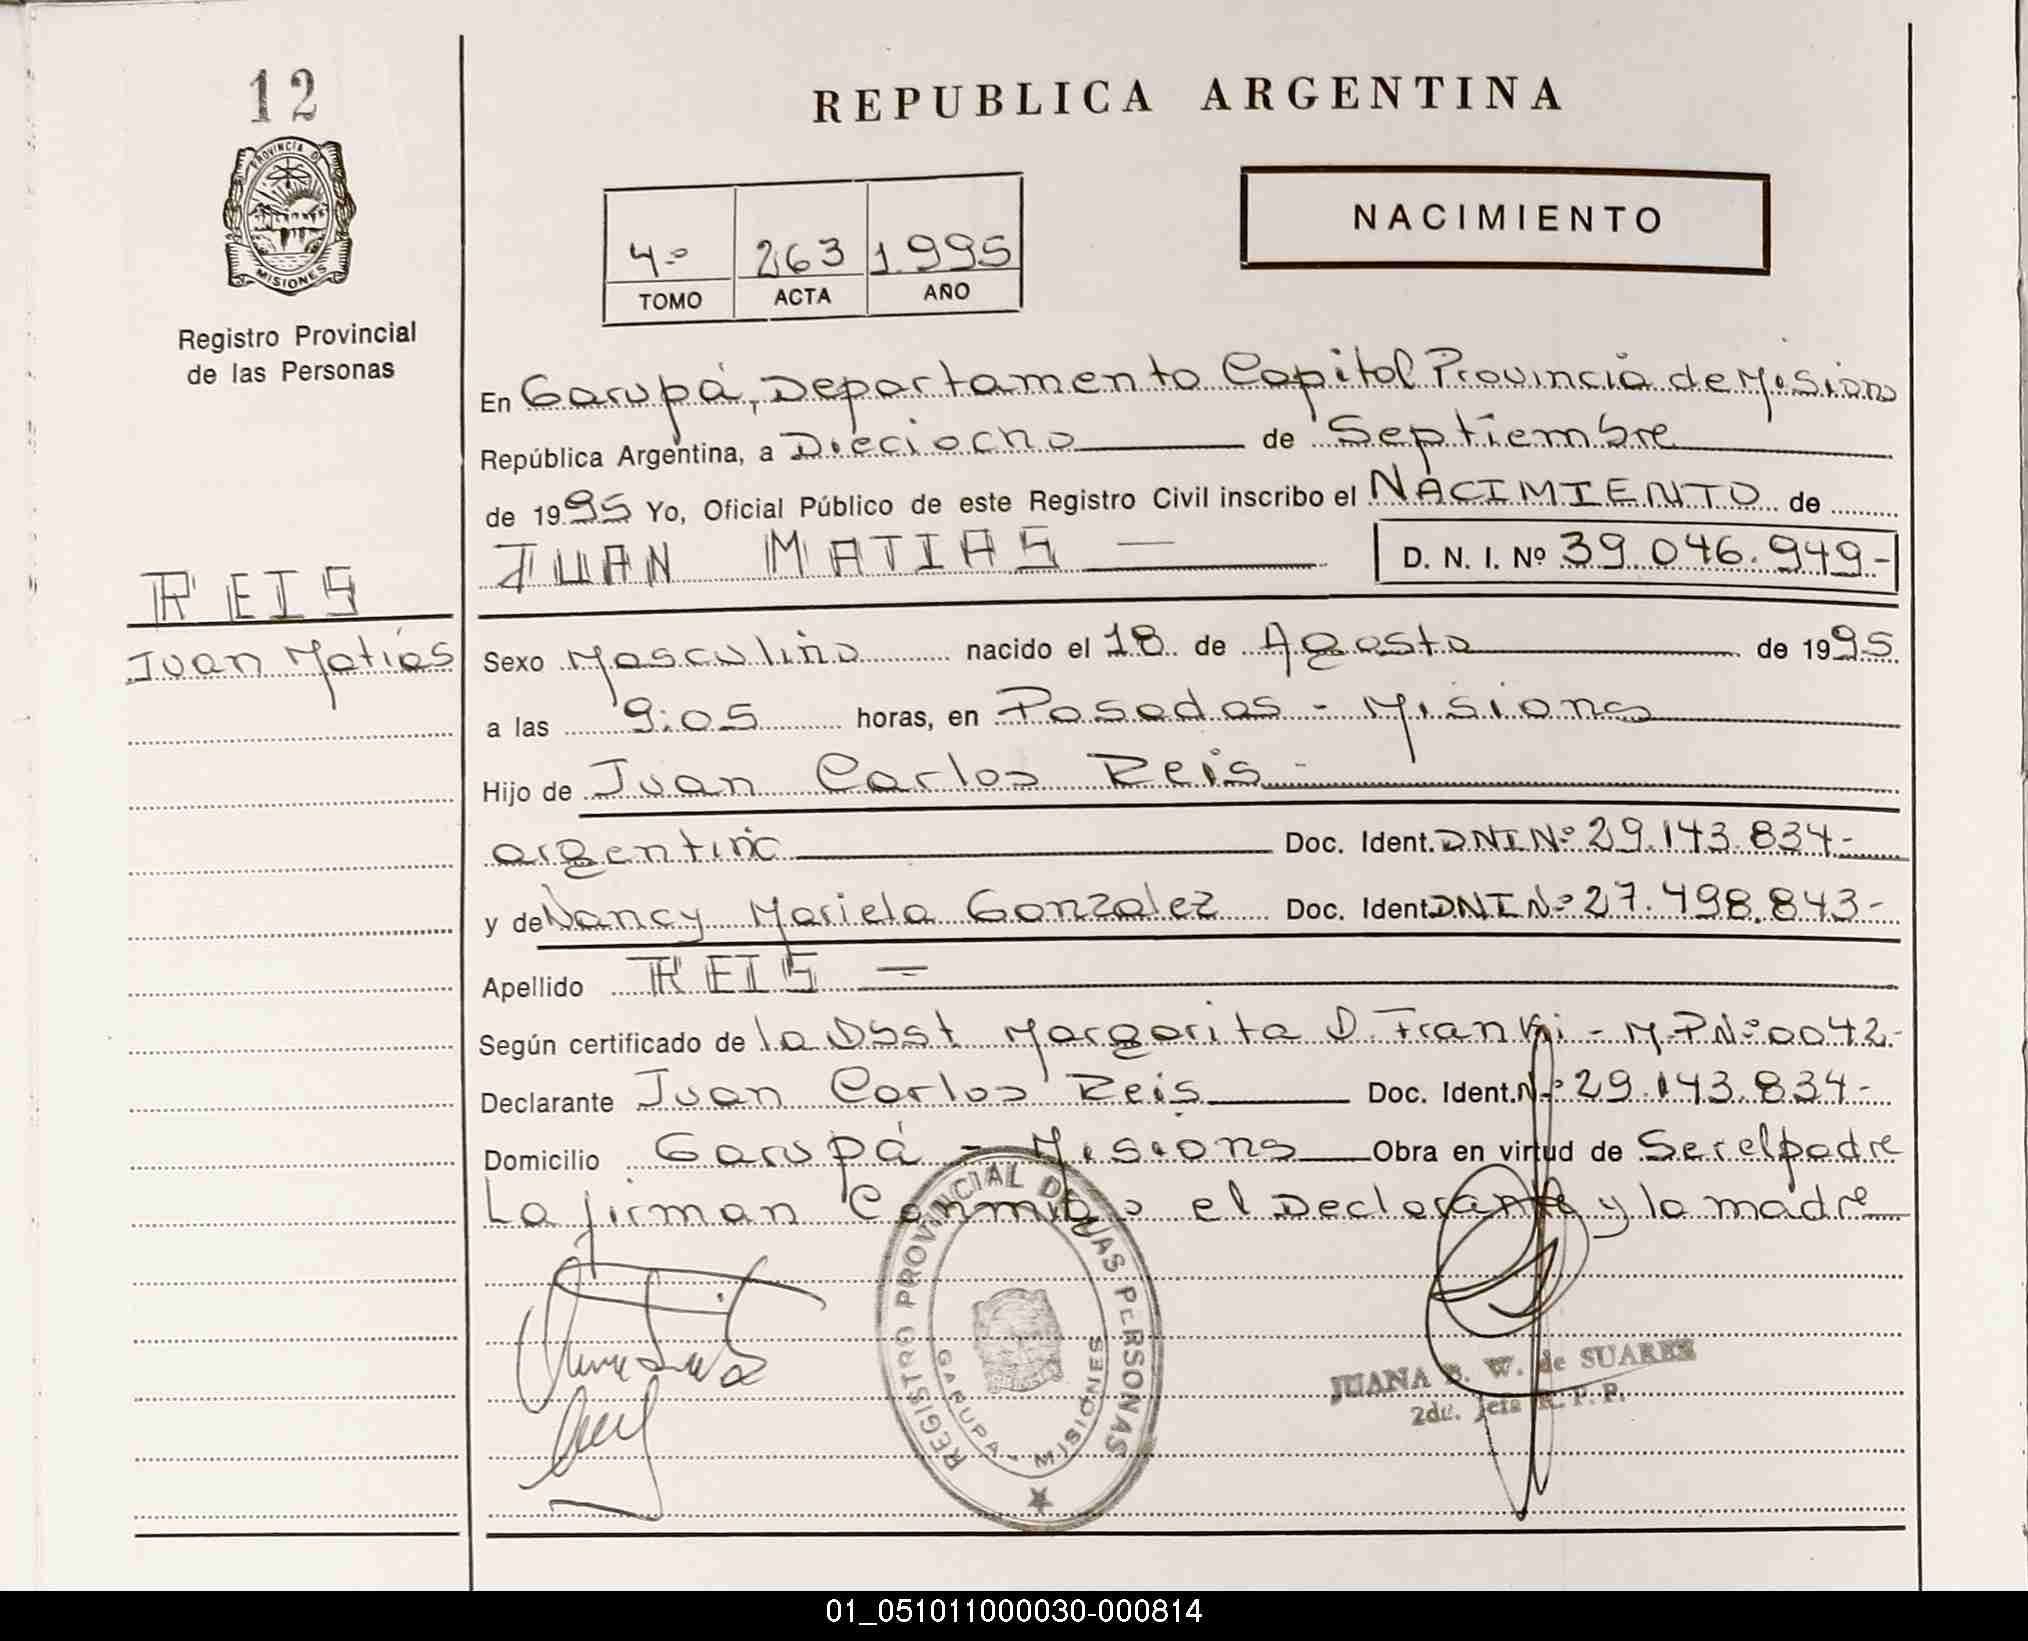 12
REPUBLICA ARGENTINA
PROVINCIA D
MISIONES
Registro Provincial
de las Personas
NACIMIENTO
4º 263 1995
TOMO ACTA AÑO
En Garupá, Departamento Capital Provincia de Misions
República Argentina, a Dieciocho de Septiembre
de 1995 Yo, Oficial Público de este Registro Civil inscribo el NACIMIENTO de
JUAN MATIAS D. N. I. Nº 39.046.949-
REIS
Juan Matías
Sexo Masculino nacido el 18 de Agosto de 1995
a las 9:05 horas, en Posadas - Misions
Hijo de Juan Carlos Reis -
argentino Doc. Ident. DNI Nº 29.143.834-
y de Nancy Mariela Gonzalez Doc. Ident. DNI Nº 27.498.843-
Apellido REIS =
Según certificado de la Obst Margarita D. Franki - M.P Nº 0042-
Declarante Juan Carlos Reis Doc. Ident. Nº 29.143.834-
Domicilio Garupá - Misions Obra en virtud de Ser el padre
La firman Conmigo el Declarante y la madre
REGISTRO PROVINCIAL DE LAS PERSONAS
GARUPA - MISIONES
JUANA B. W. de SUAREZ
2da. Jefa R. P. P.
01_051011000030-000814